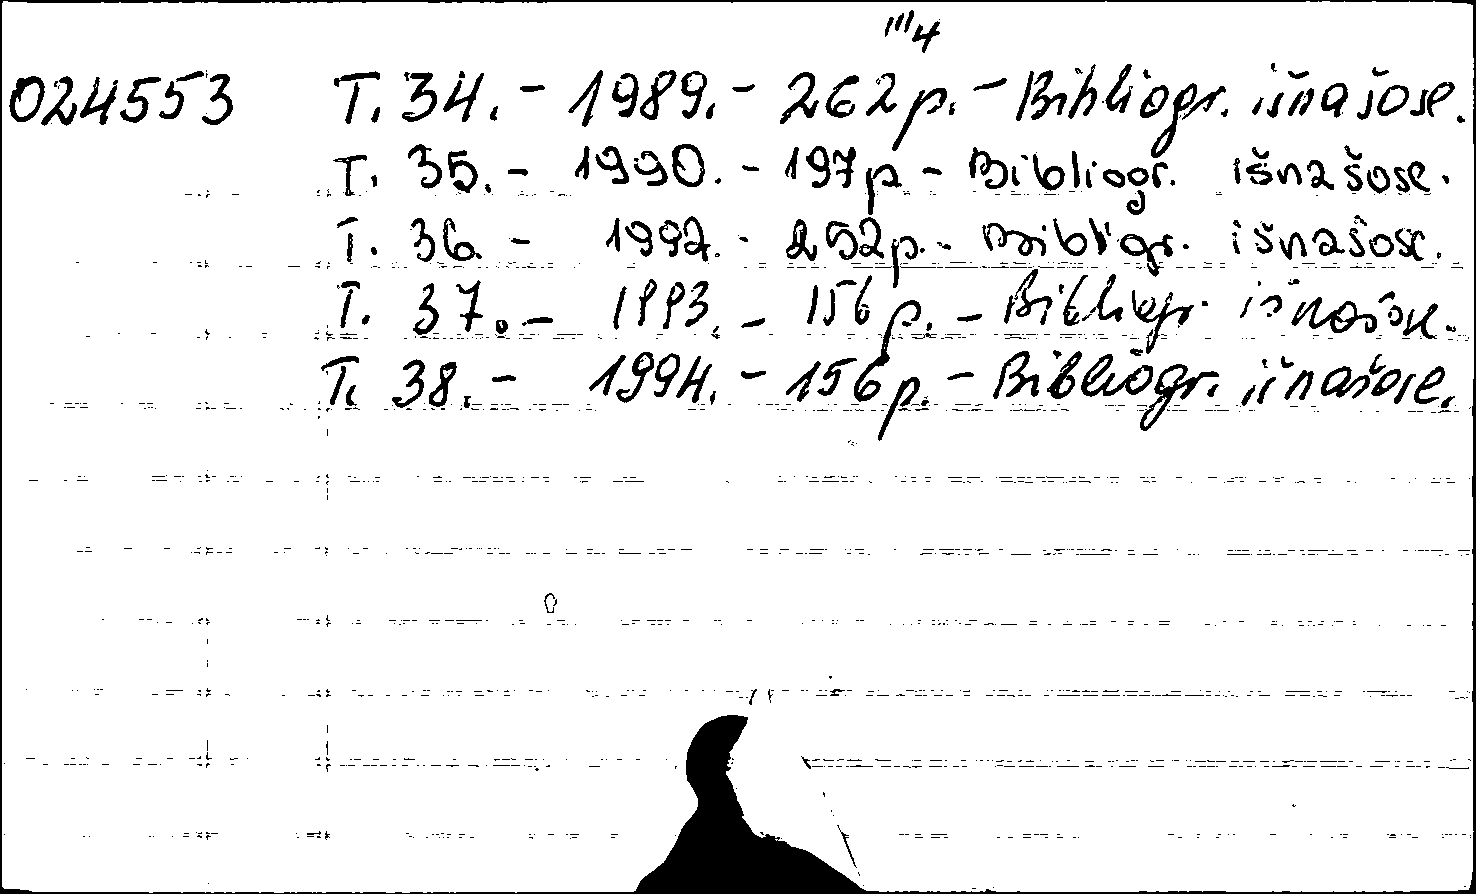 "'4
024553 T. 34. - 1989. - 262 p. - Bibliogr. išnašose.
T. 35. - 1990. - 197 p - Bibliogr. išnašose.
T. 36. - 1992. - 252 p. - Bibliogr. išnašose.
T. 37. - 1993. - 156 p. - Bibliogr. išnašose.
T. 38. - 1994. - 156 p. - Bibliogr. išnašose.